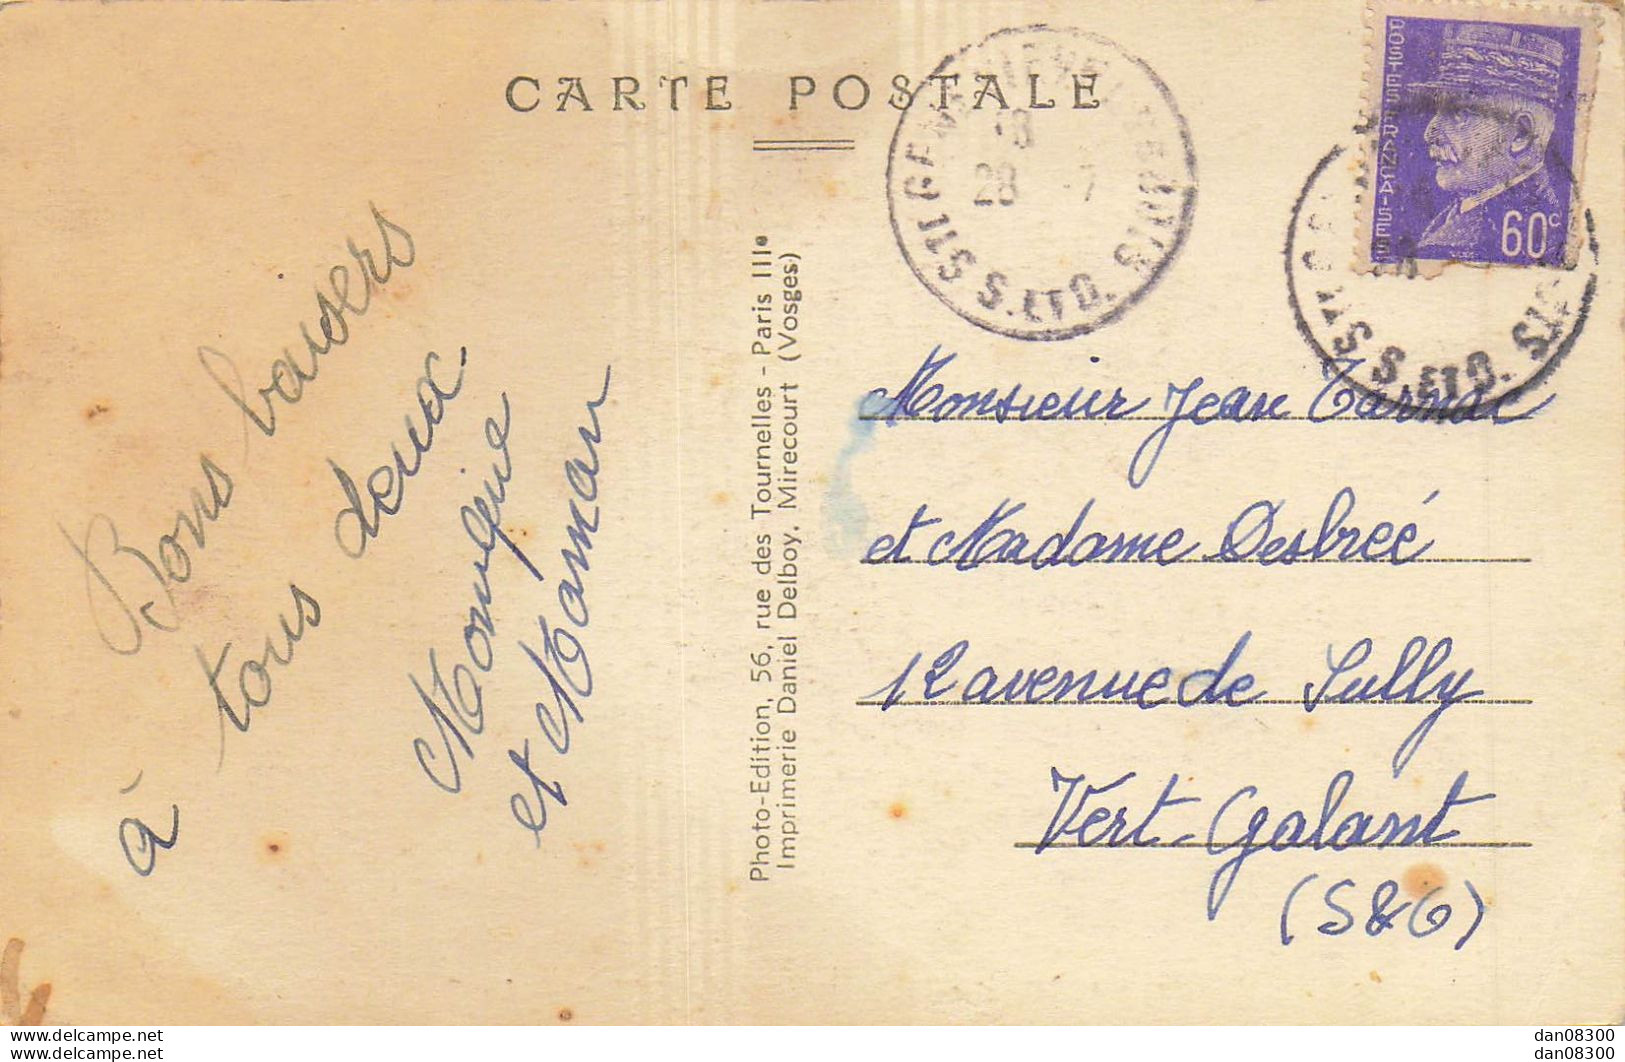 CARTE POSTALE
POSTES FRANÇAISES
60c
28 -7
S. ET O.
S. ET O.
Bons baisers
à tous deux
Monique
et Maman
Photo-Edition, 56, rue des Tournelles - Paris IIIe
Imprimerie Daniel Delboy, Mirecourt (Vosges)
Monsieur Jean
et Madame Desbreé
12 avenue de Sully
Vert-Galant
(S&O)
dan08300
dan08300
www.delcampe.net
www.delcampe.net